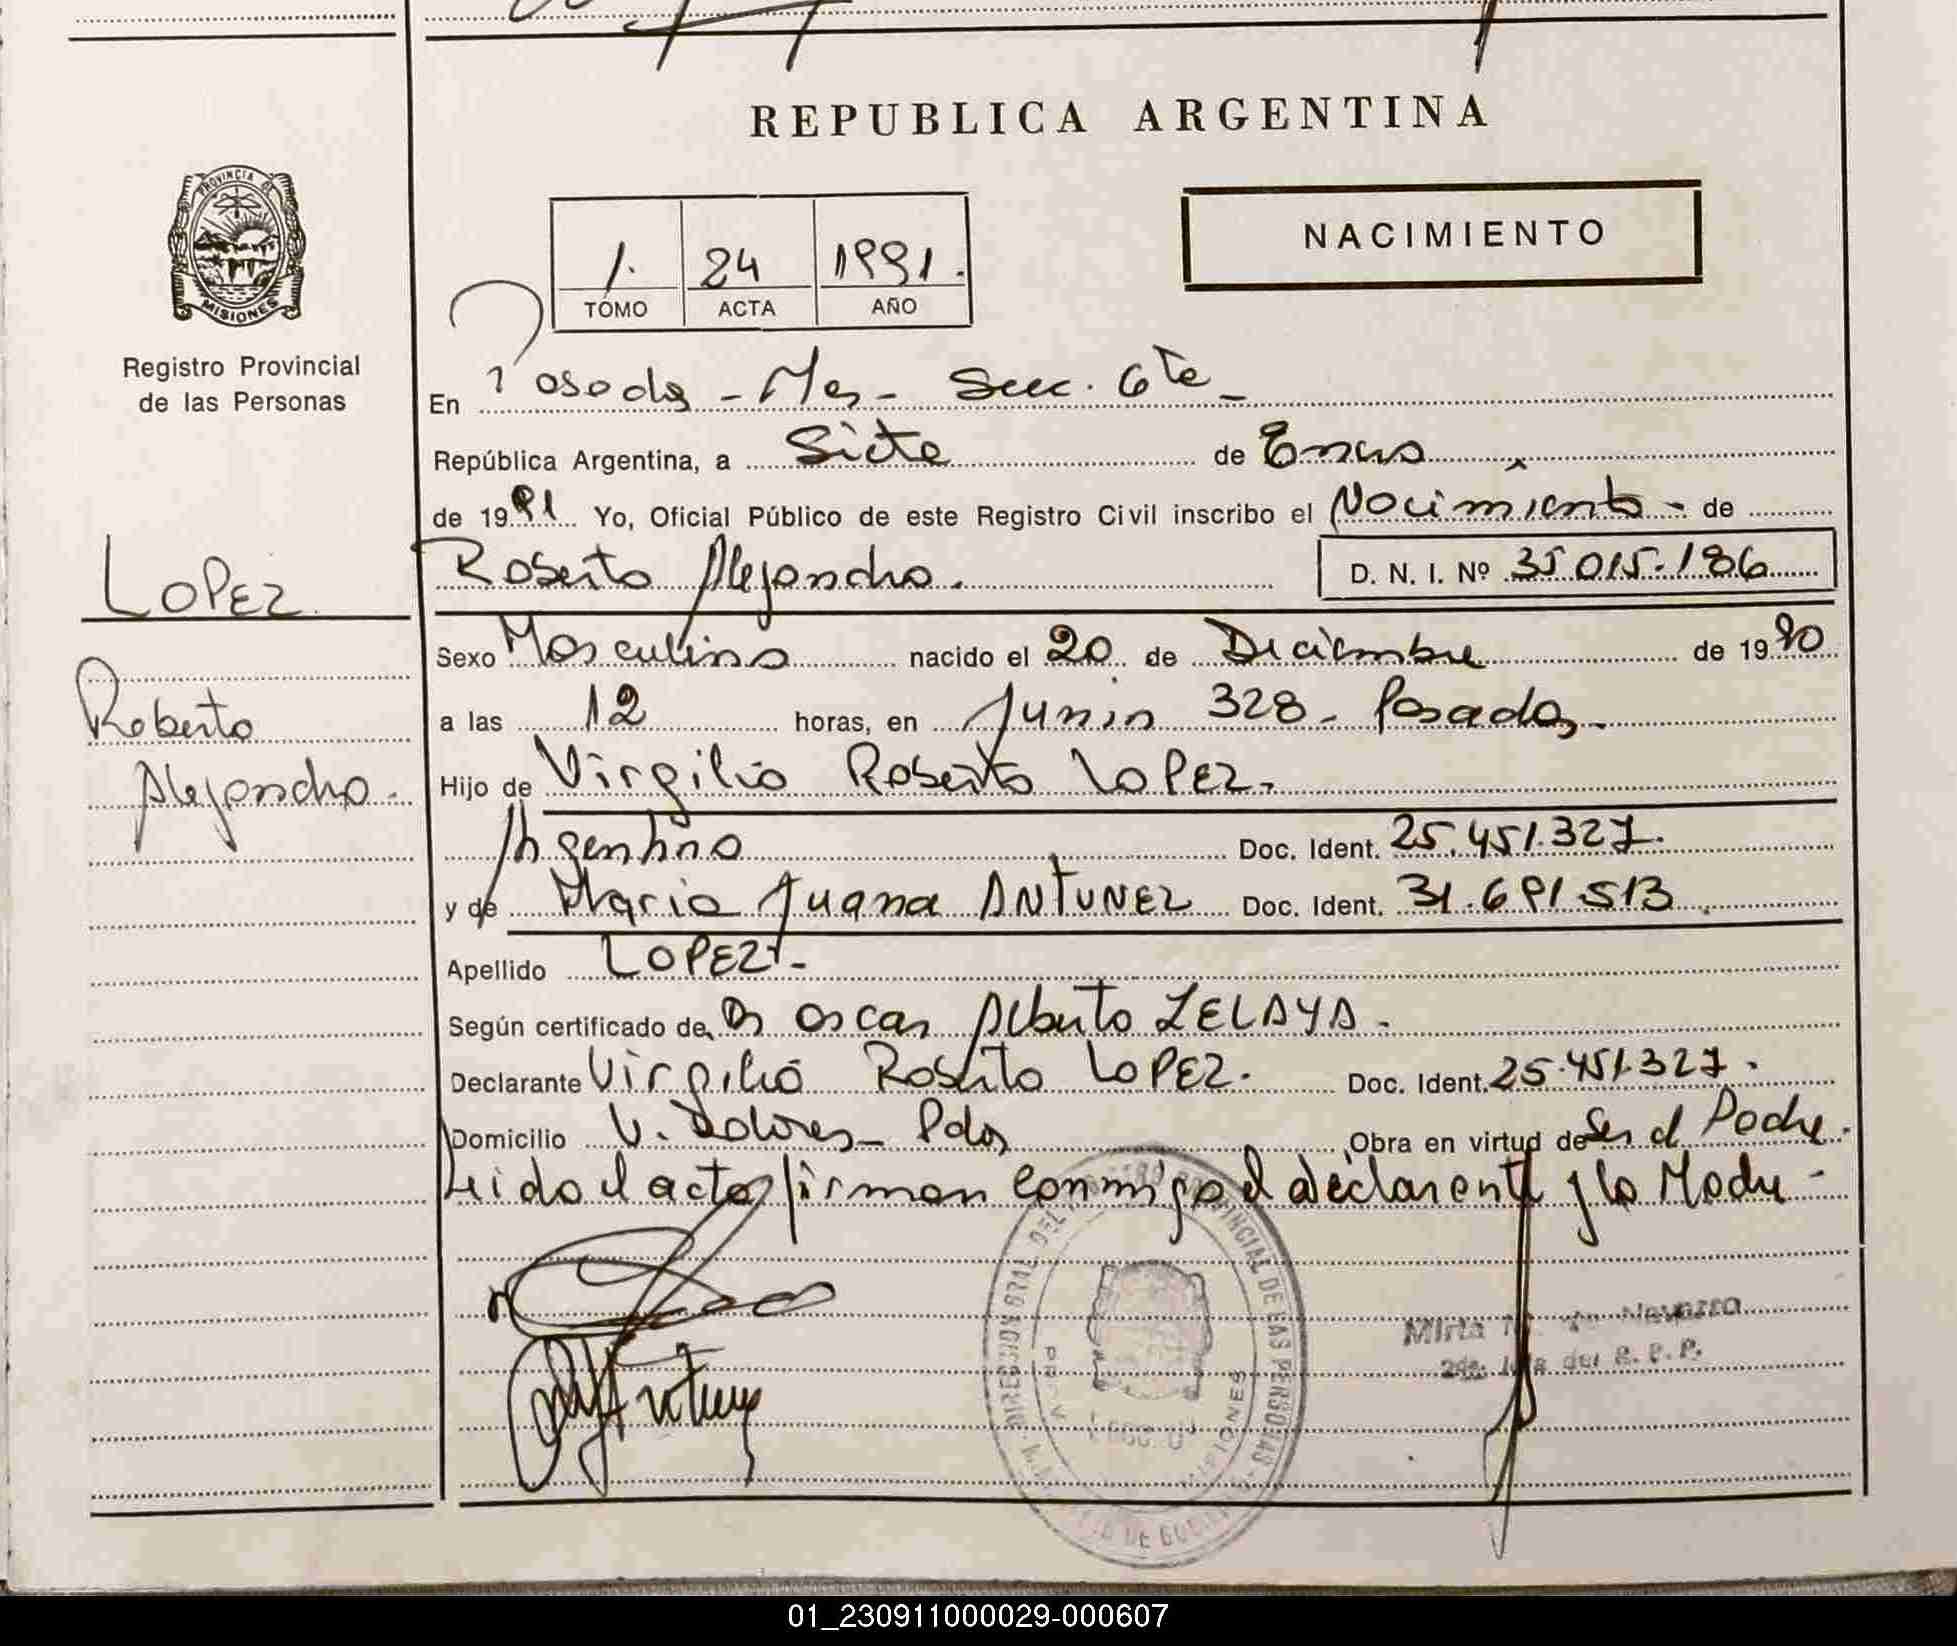 REPUBLICA ARGENTINA
PROVINCIA DE
MISIONES
Registro Provincial
de las Personas
LOPEZ
Roberto
Alejandro.
1. 24 1991.
TOMO ACTA AÑO
NACIMIENTO
En Posadas - Mes - Secc. 6ta -
República Argentina, a Siete de Enero
de 1991 Yo, Oficial Público de este Registro Civil inscribo el Nacimiento - de
Roberto Alejandro. D. N. I. Nº 35.015.186
Sexo Masculino nacido el 20 de Diciembre de 1990
a las 12 horas, en Junin 328 - Posadas.
Hijo de Virgilio Roberto LOPEZ.
Argentino Doc. Ident. 25.451.327.
y de Maria Juana ANTUNEZ Doc. Ident. 31.691.513
Apellido LOPEZ.-
Según certificado de Dr Oscar Alberto ZELAYA.
Declarante Virgilio Roberto LOPEZ. Doc. Ident. 25.451.327.
Domicilio V. Dolores - Pdas Obra en virtud de Ser el Padre.
Leido el acta firman conmigo el declarante y la Madre -
PROVINCIAL DE LAS PERSONAS
MISIONES
Mirta Navarro
del R. P. P.
01_230911000029-000607